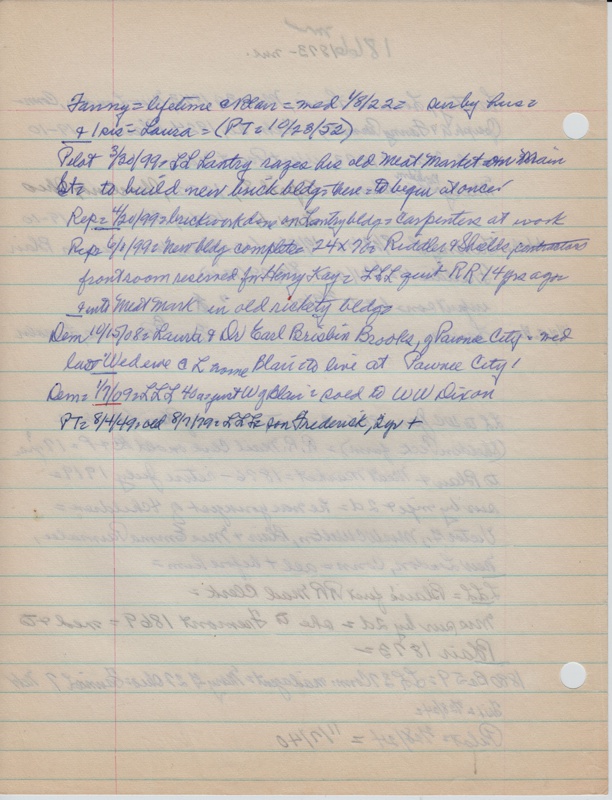 Fanny = lifetime @ Blair = med 1/8/22 = surby hus =
& 1 sis = Laura = (PT = 10/23/52)
Pilot 3/30/99 = LL Lantry razes his old Meat Market on Main
St = to build new brick bldg there = to begin at once
Rep = 4/20/99 = brickwork done on Lantry bldg = carpenters at work
Rep = 6/1/99 = New bldg complete = 24 x 70 = Riddler & Shields contractors
front room reserved for Henry Kay = LLL quit RR 14 yrs ago
& into Meat Mark in old rickety bldg
Dem 10/15/08 = Laura & Dr Earl Brisbin Brooks, of Pawnee City = med
last Wed eve @ L home Blair to live at Pawnee City
Dem = 1/7/09 = LLL 40 a just W of Blair = sold to WW Dixon
PT = 8/4/49 = old 8/7/79 = LLL son Frederick, 2yr +